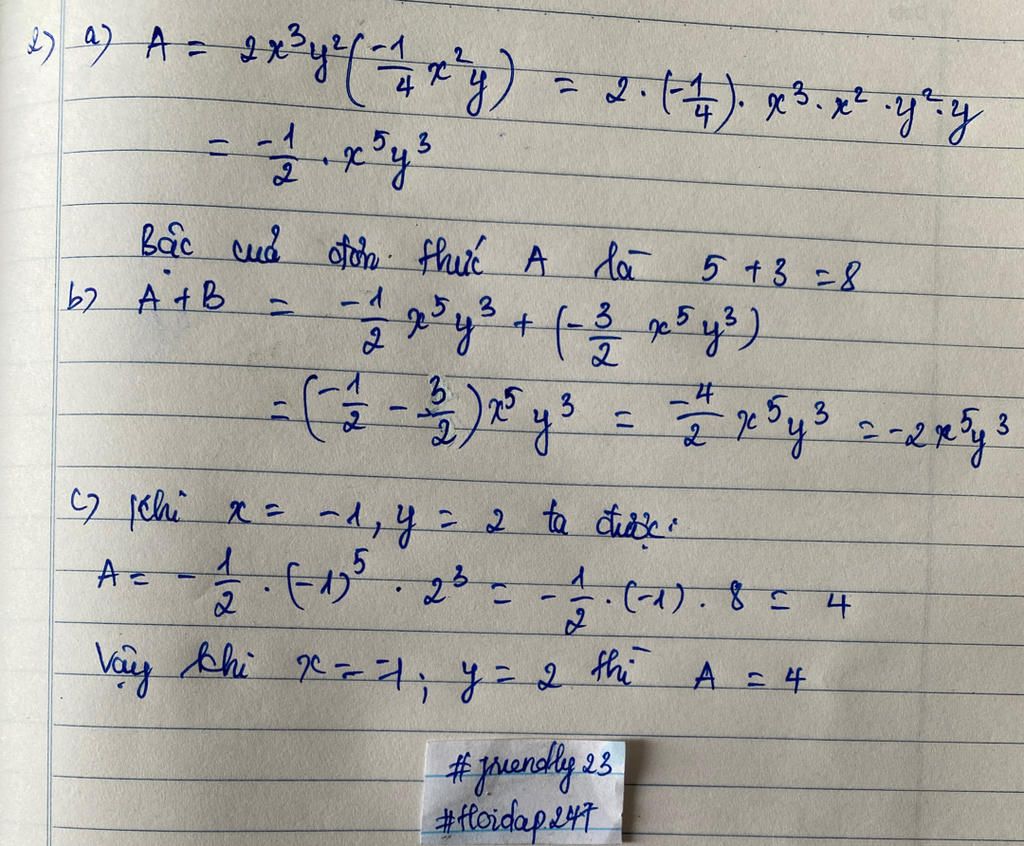 2) a) A = 2x³y²(-1/4 x²y) = 2 · (-1/4) · x³ · x² · y² · y
= -1/2 · x⁵y³
Bậc của đơn thức A là 5 + 3 = 8
b) A + B = -1/2 x⁵y³ + (-3/2 x⁵y³)
= (-1/2 - 3/2)x⁵y³ = -4/2 x⁵y³ = -2x⁵y³
c) Khi x = -1, y = 2 ta được:
A = -1/2 · (-1)⁵ · 2³ = -1/2 · (-1) · 8 = 4
Vậy khi x = -1; y = 2 thì A = 4
#friendly23
#Hoidap247